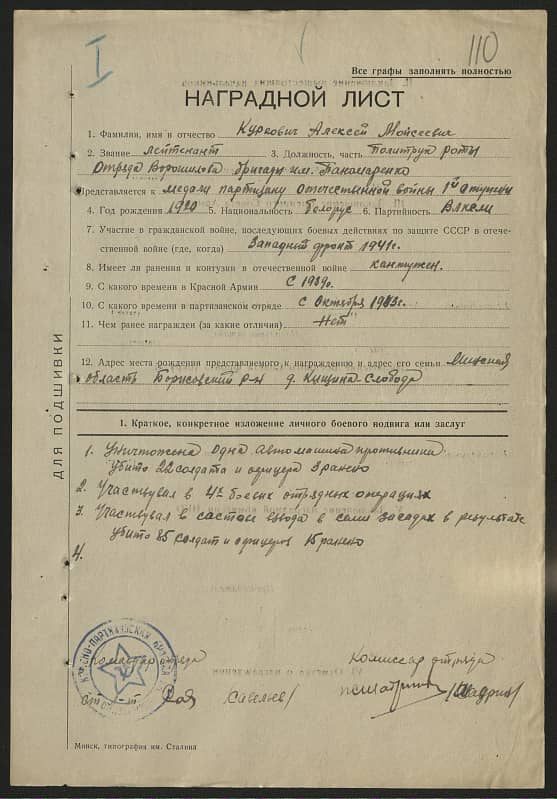 I
110
Все графы заполнять полностью
НАГРАДНОЙ ЛИСТ
1. Фамилии, имя и отчество Куркович Алексей Мойсеевич
2. Звание лейтенант 3. Должность, часть Политрук роты
Отряда Ворошилова бригады им. Панамаренко
Представляется к медали партизану отечественной войны 1й
4. Год рождения 1920 5. Национальность белорус 6. Партийность
7. Участие в гражданской войне, последующих боевых действиях по защите СССР в отече-
ственной войне (где, когда) Западний фронт 1941г.
8. Имеет ли ранения и контузии в отечественной войне кантужен.
9. С какого времени в Красной Армии С 1939г.
10. С какого времени в партизанском отряде с Октября 1943г.
11. Чем ранее награжден (за какие отличия) Нет
12. Адрес места рождения представляемого к награждению и адрес его семьи Минская
область Борисовский р-н д. Слобода
ДЛЯ ПОДШИВКИ
1. Краткое, конкретное изложение личного боевого подвига или заслуг
1. Уничтожена одна автомашина противника
убито 22 солдата и офицера 3 ранено
2. Участвувал в 4х боевых отрядных операциях
3. Участвувал в составе взвода в семи засадах в результате
убито 85 солдат и офицеров 15 ранено
4.
Командир отряда
Комиссар отряда
Савельев/
Минск, типография им. Сталина